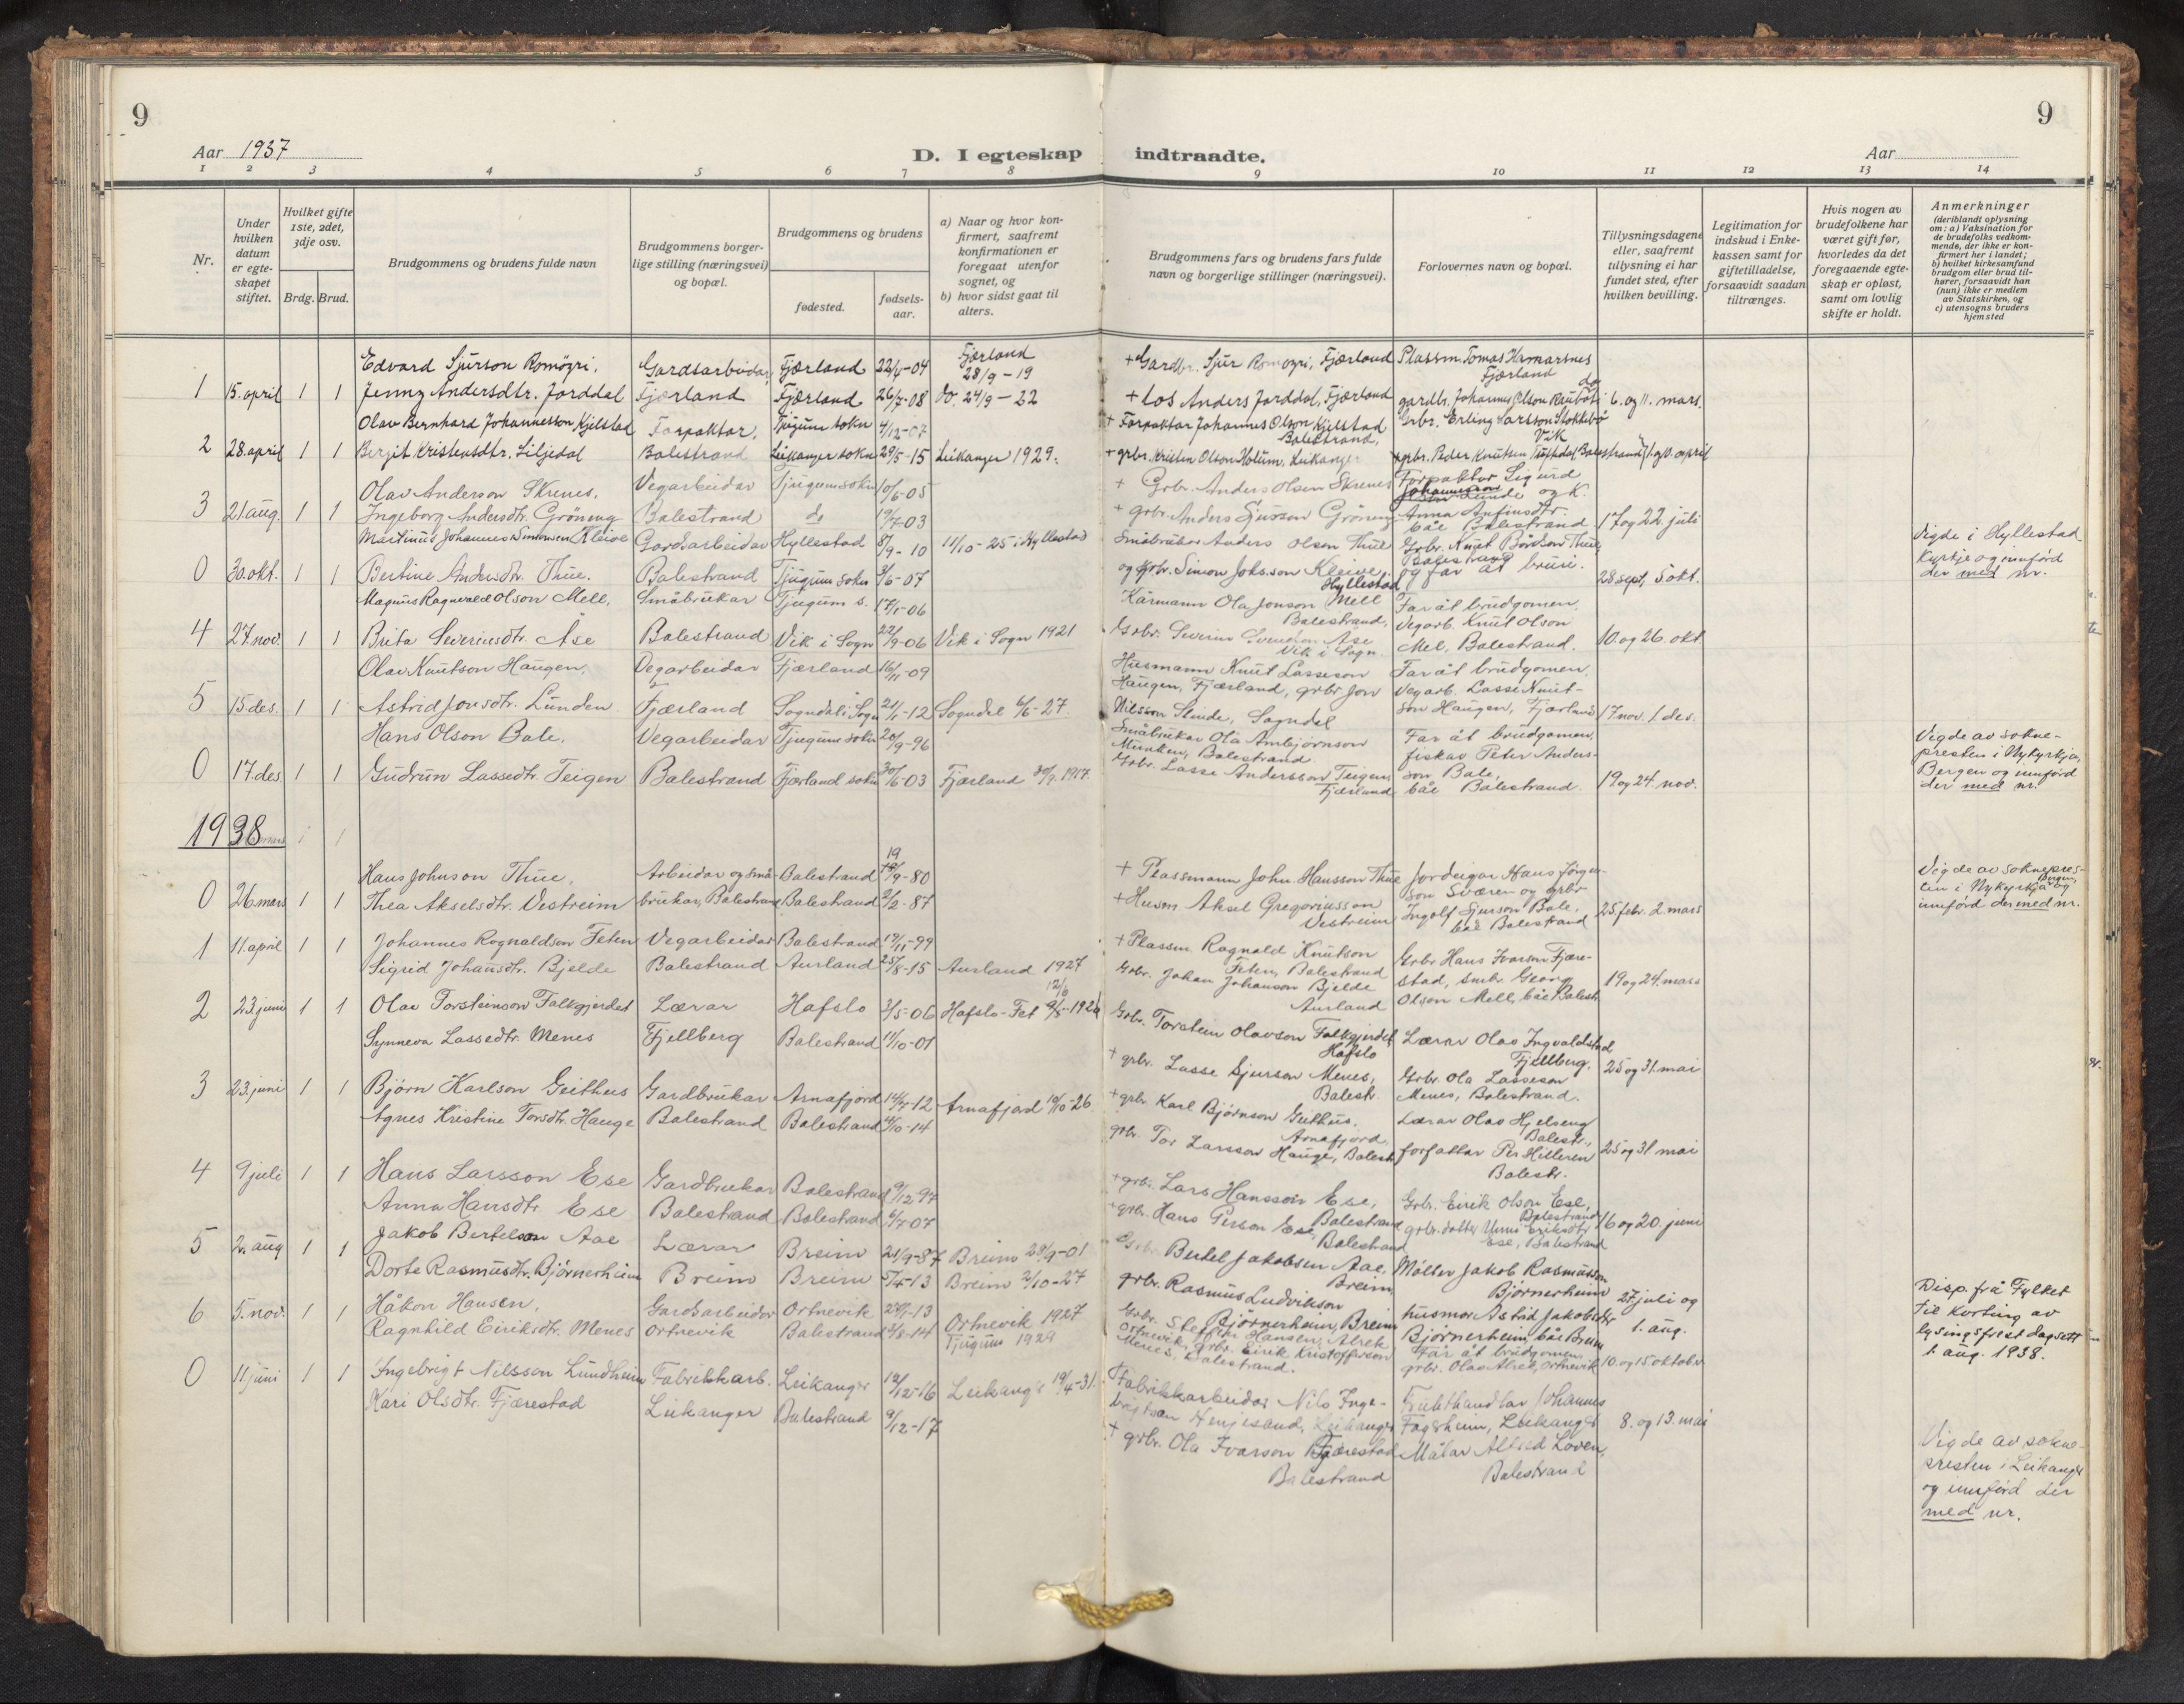 9
9
Aar 1937
D. I egteskap indtraadte.
Aar
1 2 3 4 5 6 7 8 9 10 11 12 13 14
Nr.
Under hvilken datum er egteskapet stiftet.
Hvilket gifte 1ste, 2det, 3dje osv.
Brdg. Brud.
Brudgommens og brudens fulde navn
Brudgommens borgerlige stilling (næringsvei) og bopæl.
Brudgommens og brudens
fødested.
fødselsaar.
a) Naar og hvor konfirmert, saafremt konfirmationen er foregaat utenfor sognet, og
b) hvor sidst gaat til alters.
Brudgommens fars og brudens fars fulde navn og borgerlige stillinger (næringsvei).
Forlovernes navn og bopæl.
Tillysningsdagene eller, saafremt tillysning ei har fundet sted, efter hvilken bevilling.
Legitimation for indskud i Enkekassen samt for giftetilladelse, forsaavidt saadan tiltrænges.
Hvis nogen av brudefolkene har været gift før, hvorledes da det foregaaende egteskap er opløst, samt om lovlig skifte er holdt.
Anmerkninger
(deriblandt oplysning om: a) Vaksination for de brudefolks vedkommende, der ikke er konfirmert her i landet;
b) hvilket kirkesamfund brudgom eller brud tilhører, forsaavidt han (hun) ikke er medlem av Statskirken, og
c) utensogns bruders hjemsted
Edvard Sjurson Romøyri, Gardsarbeidar, Fjærland 22/6-04 Fjærland 28/9-19 + Gardbr. Sjur Romøyri, Fjærland Plassm. Tomas Hamarsnes Fjærland
1 15. april 1 1 Jenny Andersdtr. Jorddal Fjærland Fjærland 26/7-08 Do. 24/9-22 + Los Anders Jorddal, Fjærland gardbr. Johannes Olson 6. og 11. mars.
Olav Bernhard Johannesson Kjelstad Forpaktar, Tjugum sokn 4/12-07 + Forpaktar Johannes Olson Kjelstad Balestrand, Grbr. Erling Larsson Stokkebø Vik
2 28. april 1 1 Bergit Kristensdtr. Liljedal Balestrand Leikanger sokn 29/5-15 Leikanger 1929. + grbr. Kristen Olson Holum, Leikanger grbr. Peder Knutsen Balestrand
Olav Anderson Skrenes, Vegarbeidar Tjugum sokn 10/6-05 + Grbr. Anders Olsen Skrenes Forpaktar Sigurd Johannesson Lunde og K.
3 21 aug. 1 1 Ingeborg Andersdtr. Grøneng Balestrand do 19/7-03 + grbr. Anders Sjurson Grøneng Anna Anfinsdtr. båe Balestrand 17 og 22 juli
Martinus Johannes Simonsen Kleive Gardsarbeidar Hyllestad 8/9-10 11/10-25 i Hyllestad Småbrukar Anders Olsen Thue Grbr. Knut Bårdson Thue, Balestrand
0 30. okt. 1 1 Bertine Andersdtr. Thue. Balestrand Tjugum sokn 3/6-07 og grbr. Simon Johs.son Kleive, Hyllestad og far åt bruri. 28 sept, 5 okt.
Vigde i Hyllestad kyrkje og innførd der med nr.
Magnus Ragnvald Olson Mell, Småbrukar Tjugum s. 17/1-06 Kårmann Ola Jonson Mell Balestrand, Far åt brudgomen,
4 27. nov. 1 1 Brita Severinsdtr. Åse Balestrand Vik i Sogn 22/9-06 Vik i Sogn 1921 Grbr. Severin Svendsen Åse Vik i Sogn. Vegarb. Knut Olson Mel, Balestrand. 10. og 26. okt.
Olav Knutson Haugen, Vegarbeidar Fjærland 16/11-09 Husmann Knut Lasseson Haugen, Fjærland, grbr Jon Far åt brudgomen.
5 15 des. 1 1 Astrid Jonsdtr. Lunden Fjærland Sogndal i Sogn 21/1-12 Sogndal 6/6-27 Nilsson Slinde, Sogndal Vegarb. Lasse Knutson Haugen, Fjærland 17 nov. 1. des.
Hans Olson Bale. Vegarbeidar Tjugum sokn 20/9-96 Småbrukar Ola Ambjørnson Munken, Balestrand. Far åt brudgomen,
0 17. des. 1 1 Gudrun Lassedtr. Teigen Balestrand Fjærland sokn 30/6-03 Fjærland 30/9-1917. Grbr. Lasse Andersson Teigen, Fjærland fiskar Peter Andersson Bale, båe Balestrand. 19 og 24. nov.
Vigde av soknepresten i Nykyrkja, Bergen og innførd der med nr.
1938
Hans Johnson Thue, Arbeidar og småbrukar, Balestrand Balestrand 19/9-80 + Plassmann John Hansson Thue Jordeigar Hans Jørgenson Sværen og grbr
0 26. mars 1 1 Thea Akselsdtr. Vestreim Balestrand 2/2-87 + Husm Aksel Gregoriusson Vestreim Ingolf Sjurson Bale, båe Balestrand 25. febr. 2. mars
Vigde av soknepresten i Nykyrkja Bergen, og innførd der med nr.
1 11. april 1 1 Johannes Rognaldson Feten Vegarbeidar Balestrand 19/11-99 + Plassm Ragnald Knutson Feten, Balestrand Grbr Hans Ivarson Fjærestad, småbr. Georg
Sigrid Johansdtr. Bjelde Balestrand Aurland 25/8-15 Aurland 1927 Grbr. Johan Johanson Bjelde Aurland Olson Mell, båe Balestr. 19 og 24. mars
2 23. juni 1 1 Olav Torsteinson Falkgjerdet Lærar Hafslo 3/5-06 Hafslo-Fet Grbr. Torstein Olavson Falkgjerdet Hafslo Lærar Olav Ingvaldstad, Fjellberg,
Synneva Lassedtr. Menes Fjellberg Balestrand 11/10-01 + grbr. Lasse Sjurson Menes, Balestr. Grbr. Ola Lasseson Menes, Balestrand. 25 og 31. mai
3 23. juni 1 1 Bjørn Karlson Geithus Gardbrukar Arnafjord 14/7-12 Arnafjord 10/10-26. + grbr Karl Bjørnson Geithus, Arnafjord, Lærar Olav Hjelseng Balestr.,
Agnes Kristine Torsdtr. Hauge Balestrand Balestrand 4/10-14 grbr. Tor Larsson Hauge, Balestr. forfattar Per Hilleren Balestr. 25 og 31 mai
4 9 juli 1 1 Hans Larsson Ese Gardbrukar Balestrand 9/12-97 + grbr. Lars Hansson Ese, Balestrand Grbr. Eirik Olson Ese, Balestrand
Anna Hansdtr. Ese Balestrand Balestrand 6/7-07 + grbr. Hans Person Ese, Balestrand grbr. dotter Unni Eriksdtr Ese, Balestrand 16 og 20. juni
5 2. aug 1 1 Jakob Bertelson Aae Lærar Breim 21/9-87 Breim 28/9-01 Grbr. Bertel Jakobsen Aae, Breim Møller Jakob Rasmusson Bjørnerheim
Dorte Rasmusdtr. Bjørnerheim Breim Breim 5/4-13 Breim 2/10-27 grbr. Rasmus Ludvikson Bjørnerheim, Breim husmor Astrid Jakobsdtr Bjørnerheim, båe Breim 27 juli og 1. aug.
Disp. frå Fylket til korting av lysingsfrest dagsett 1. aug. 1938.
6 5. nov. 1 1 Håkon Hansen, Gardsarbeidar Ortnevik 28/1-13 Ortnevik 1927 Grbr. Steffen Hansen, Alrek Ortnevik, grbr. Eirik Kristofferson Menes, Balestrand. Far åt brudgomen,
Ragnhild Eiriksdtr. Menes Ortnevik Balestrand 3/8-14 Tjugum 1929 grbr. Olav Alrek, Ortnevik 10. og 15 oktober
0 11 juni 1 1 Ingebrigt Nilsson Lundheim Fabrikkarb. Leikanger 12/12-16 Leikanger 19/4-31. Fabrikkarbeidar Nils Ingebrigtson Henjesand, Leikanger Frukthandlar Johannes Fagerheim, Leikanger 8. og 13. mai
Kari Olsdtr. Fjærestad Leikanger Balestrand 9/12-17 + grbr. Ola Ivarson Fjærestad Balestrand Målar Alfred Loven, Balestrand
Vigde av soknepresten i Leikanger og innførd der med nr.